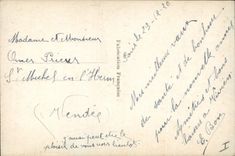 Madame et Monsieur
Omer
St Michel en l'Herm
(Vendée)
J'aurai peut être le
plaisir de vous voir bientôt.
Fabrication Française
Paris le 23-12-20
Nos meilleurs vœux
de santé et de bonheur
pour la nouvelle année
Amitiés et bons
baisers à